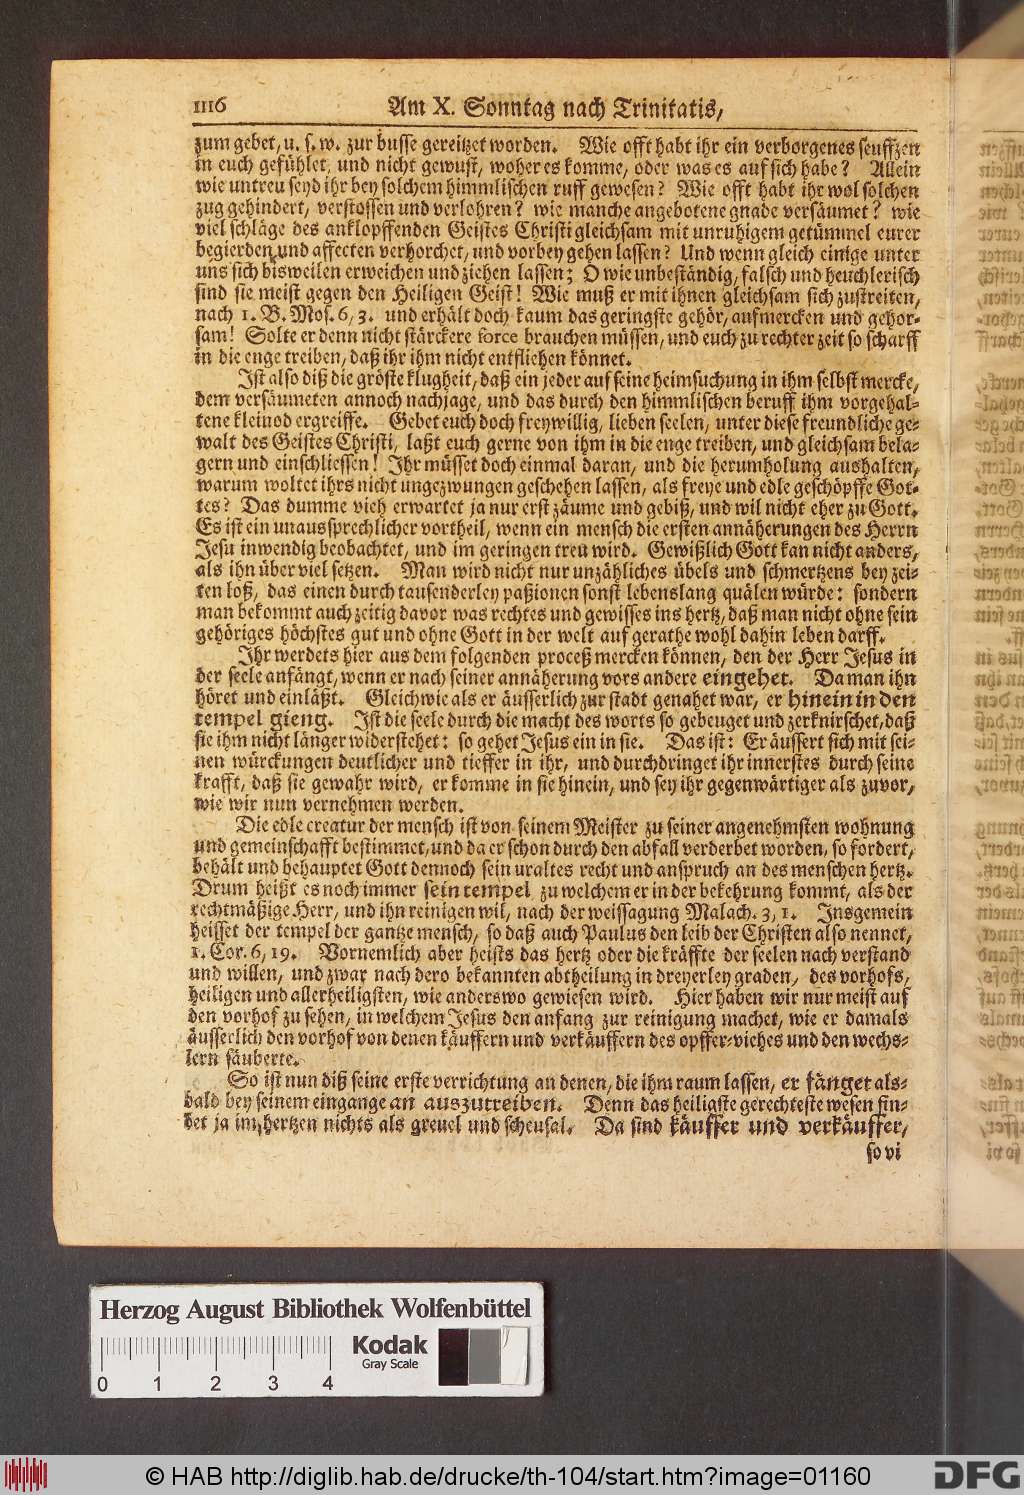 1116 Am X. Sonntag nach Trinitatis,
zum gebet, u. s. w. zur busse gereitzet worden. Wie offt habt ihr ein verborgenes seuffzen
in euch gefühlet, und nicht gewust, woher es komme, oder was es auf sich habe? Allein
wie untreu seyd ihr bey solchem himmlischen ruff gewesen? Wie offt habt ihr wol solchen
zug gehindert, verstossen und verlohren? wie manche angebotene gnade versäumet? wie
viel schläge des anklopffenden Geistes Christi gleichsam mit unruhigem getümmel eurer
begierden und affecten verhorchet, und vorbey gehen lassen? Und wenn gleich einige unter
uns sich bisweilen erweichen und ziehen lassen; O wie unbeständig, falsch und heuchlerisch
sind sie meist gegen den Heiligen Geist! Wie muß er mit ihnen gleichsam sich zustreiten,
nach 1. B. Mos. 6, 3. und erhält doch kaum das geringste gehör, aufmercken und gehor-
sam! Solte er denn nicht stärckere force brauchen müssen, und euch zu rechter zeit so scharff
in die enge treiben, daß ihr ihm nicht entfliehen könnet.
Ist also diß die gröste klugheit, daß ein jeder auf seine heimsuchung in ihm selbst mercke,
dem versäumeten annoch nachjage, und das durch den himmlischen beruff ihm vorgehal-
tene kleinod ergreiffe. Gebet euch doch freywillig, lieben seelen, unter diese freundliche ge-
walt des Geistes Christi, laßt euch gerne von ihm in die enge treiben, und gleichsam bela-
gern und einschliessen! Ihr müsset doch einmal daran, und die herumholung aushalten,
warum woltet ihrs nicht ungezwungen geschehen lassen, als freye und edle geschöpffe Got-
tes? Das dumme vieh erwartet ja nur erst zäume und gebiß, und wil nicht eher zu Gott.
Es ist ein unaussprechlicher vortheil, wenn ein mensch die ersten annäherungen des Herrn
Jesu inwendig beobachtet, und im geringen treu wird. Gewißlich Gott kan nicht anders,
als ihn über viel setzen. Man wird nicht nur unzähliches übels und schmertzens bey zei-
ten loß, das einen durch tausenderley paßionen sonst lebenslang quälen würde: sondern
man bekommt auch zeitig davor was rechtes und gewisses ins hertz, daß man nicht ohne sein
gehöriges höchstes gut und ohne Gott in der welt auf gerathe wohl dahin leben darff.
Ihr werdets hier aus dem folgenden proceß mercken können, den der Herr Jesus in
der seele anfängt, wenn er nach seiner annäherung vors andere eingehet. Da man ihn
höret und einläßt. Gleichwie als er äusserlich zur stadt genahet war, er hinein in den
tempel gieng. Ist die seele durch die macht des worts so gebeuget und zerknirschet, daß
sie ihm nicht länger widerstehet: so gehet Jesus ein in sie. Das ist: Er äussert sich mit sei-
nen würckungen deutlicher und tieffer in ihr, und durchdringet ihr innerstes durch seine
krafft, daß sie gewahr wird, er komme in sie hinein, und sey ihr gegenwärtiger als zuvor,
wie wir nun vernehmen werden.
Die edle creatur der mensch ist von seinem Meister zu seiner angenehmsten wohnung
und gemeinschafft bestimmet, und da er schon durch den abfall verderbet worden, so fordert,
behält und behauptet Gott dennoch sein uraltes recht und anspruch an des menschen hertz.
Drum heißt es noch immer sein tempel zu welchem er in der bekehrung kommt, als der
rechtmäßige Herr, und ihn reinigen wil, nach der weissagung Malach. 3, 1. Insgemein
heisset der tempel der gantze mensch, so daß auch Paulus den leib der Christen also nennet,
1. Cor. 6, 19. Vornemlich aber heists das hertz oder die kräffte der seelen nach verstand
und willen, und zwar nach dero bekannten abtheilung in dreyerley graden, des vorhofs,
heiligen und allerheiligsten, wie anderswo gewiesen wird. Hier haben wir nur meist auf
den vorhof zu sehen, in welchem Jesus den anfang zur reinigung machet, wie er damals
äusserlich den vorhof von denen käuffern und verkäuffern des opffer-viches und den wechs-
lern säuberte.
So ist nun diß seine erste verrichtung an denen, die ihm raum lassen, er fänget als-
bald bey seinem eingange an auszutreiben. Denn das heiligste gerechteste wesen fin-
det ja im hertzen nichts als greuel und scheusal. Da sind käuffer und verkäuffer,
so vi
Herzog August Bibliothek Wolfenbüttel
Kodak
Gray Scale
0 1 2 3 4
© HAB http://diglib.hab.de/drucke/th-104/start.htm?image=01160
DFG